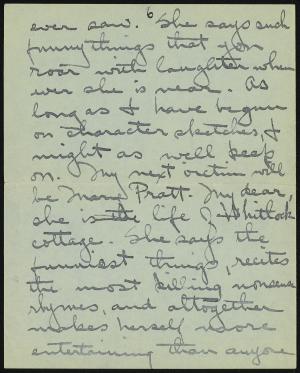 6
ever saw. She says such
funny things that you
roar with laughter when
ever she is near. As
long as I have begun
on character sketches, I
might as well keep
on. My next victim will
be Mary Pratt. My dear,
she is the life of Whitlock
cottage. She says the
funniest things, recites
the most killing nonsense
rhymes, and altogether
makes herself more
entertaining than anyone